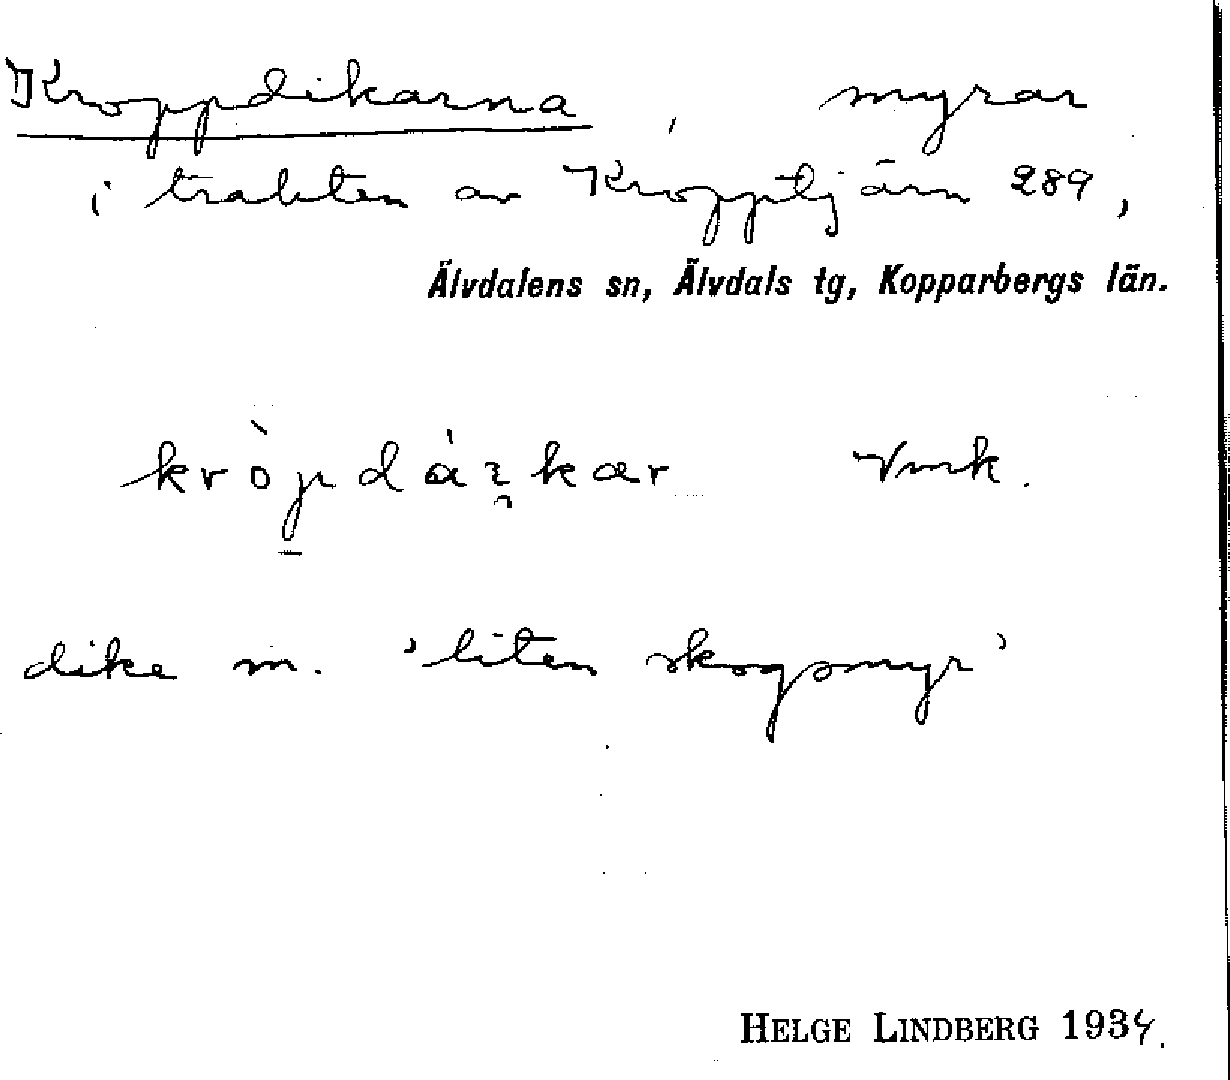 Kroppdikarna, myrar
i trakten av Kropptjärn 289,
Älvdalens sn, Älvdals tg, Kopparbergs län.
kròp̲dáı̯kær Vmk.
dike m. 'liten skogsmyr'
HELGE LINDBERG 1934.